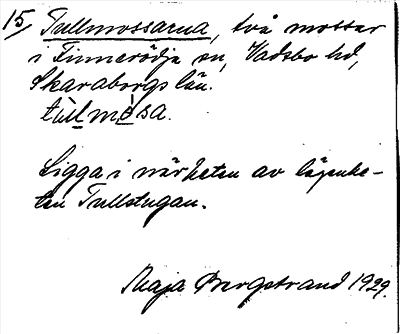 15/ Tullmossarna, två mossar
i Tinnerödja sn, Vadsbo hd,
Skaraborgs län.
tùlmòsa.
Ligga i närheten av lägenhe-
ten Tullstugan.
Maja Bergstrand 1929.